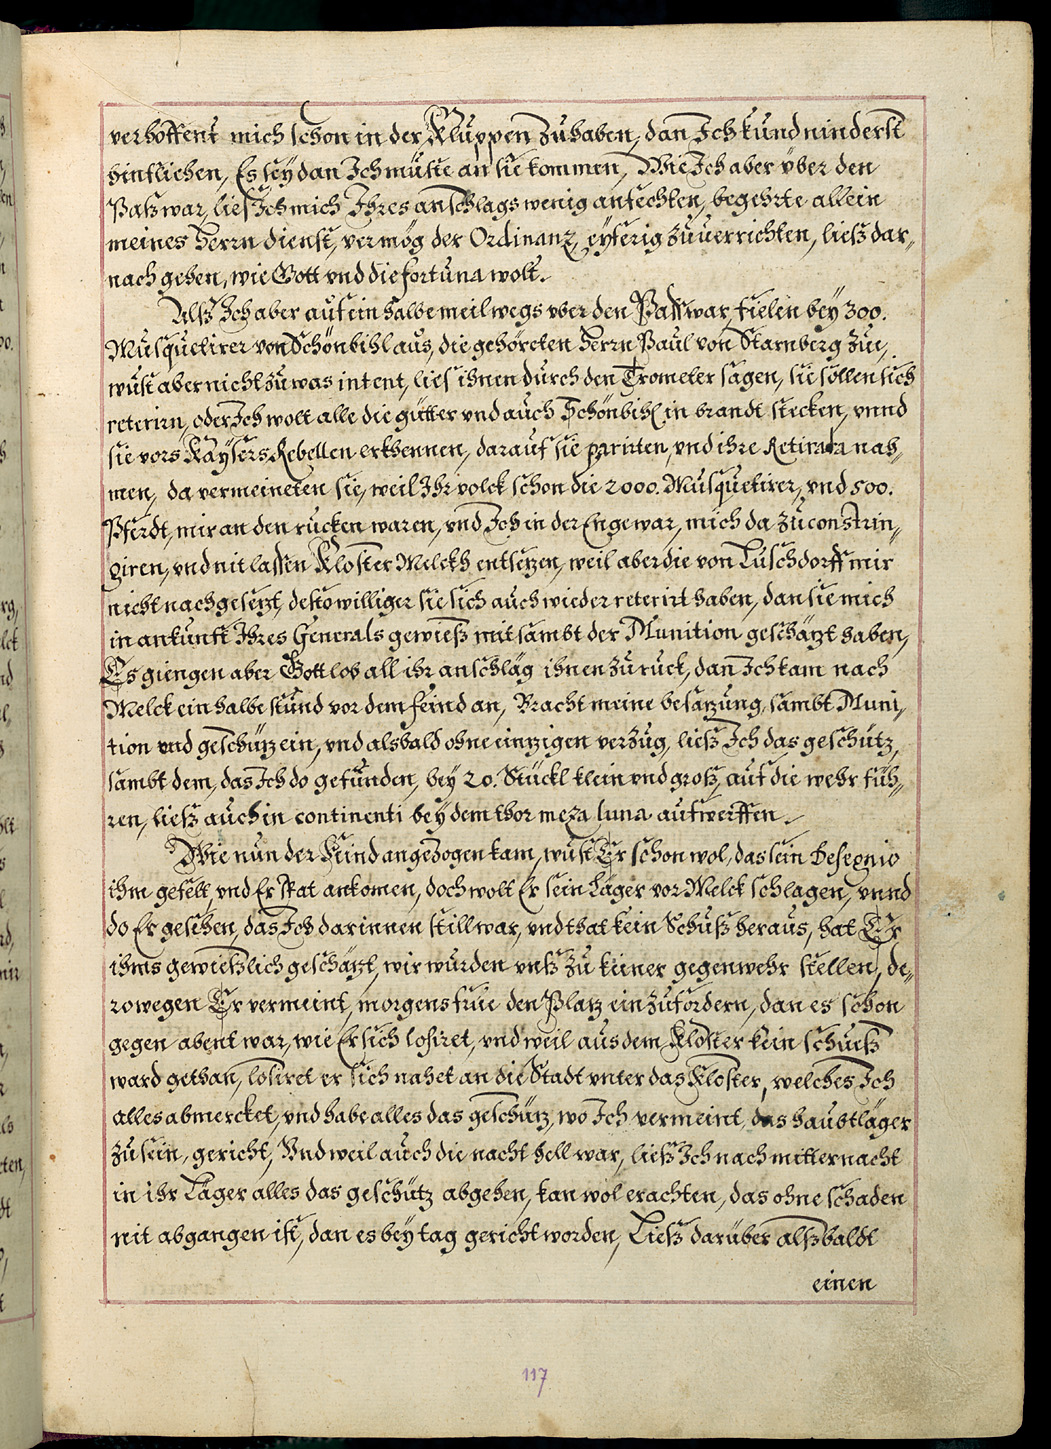 verhoffent mich schon in der Kluppen zu haben, dan Ich kund ninderst
hinfliehen, Es sey dan Ich müste an sie kommen, Wie Ich aber vber den
Paß war, ließ Ich mich Ihres anschlags wenig anfechten, begehrte allein
meines Herrn dienst, vermög der Ordinanz, eyferig zuuerrichten, ließ dar,,
nach gehen, wie Gott vnd die fortuna wolt.
Alß Ich aber auf ein halbe meil wegs vber den Paß war, fielen bey 300.
Musquetirer von Schönbihl aus, die gehöreten Herrn Paul von Starnberg zue,
wust aber nicht zu was intent, ließ ihnen durch den Trometer sagen, sie sollen sich
reterirn, oder Ich wolt alle die gütter vnd auch Schönbihl in brandt stecken, vnnd
sie vors Kaysers Rebellen erkhennen, darauf sie parirten, vnd ihre Retirata nah,,
men, da vermeineten sie, weil Ihr volck schon die 2000. Musquetirer, vnd 500.
Pferdt, mir an den rucken waren, vnd Ich in der Enge war, mich da zu constrin,,
giren, vnd nit lassen Kloster Melckh entsetzen, weil aber die von Luschdorff mir
nicht nachgesetzt, desto williger sie sich auch wieder reterirt haben, dan sie mich
in ankunft Ihres Generals gewieß mit sambt der Munition geschätzt haben,
Es giengen aber Gott lob all ihr anschläg ihnen zu ruck, dan Ich kam nach
Melck ein halbe stund vor dem feind an, Bracht meine besatzung, sambt Muni,
tion vnd geschütz ein, vnd alsbald ohne einzigen verzug, ließ Ich das geschütz,
sambt dem, das Ich do gefunden, bey 20. Stückl klein vnd groß, auf die wehr füh,,
ren, ließ auch in continenti bey dem thor meza luna aufwerffen.
Wie nun der Feind angezogen kam, wust Er schon wol, das sein desegnio
ihm gefelt, vnd Er spat ankomen, doch wolt Er sein Läger vor Melck schlagen, vnnd
do Er gesehen, das Ich darinnen still war, vnd that kein Schuß heraus, hat Er
ihms gewießlich geschätzt, wir wurden vnß zu keiner gegenwehr stellen, de,
rowegen Er vermeint, morgens frue den Platz einzufordern, dan es schon
gegen abent war, wie Er sich losiret, vnd weil aus dem Kloster kein schuß
ward gethan, losiret er sich nahet an die Stadt vnter das Kloster, welches Ich
alles abmercket, vnd habe alles das geschütz, wo Ich vermeint, das haubtläger
zu sein, gericht, Vnd weil auch die nacht hell war, ließ Ich nach mitternacht
in ihr Läger alles das geschütz abgehen, kan wol erachten, das ohne schaden
nit abgangen ist, dan es bey tag gericht worden, Ließ darüber alßbaldt
einen
117